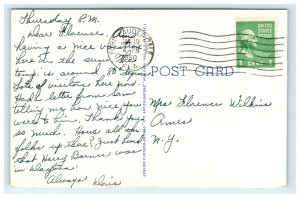 Thursday P.M.
Dear Florence, Am
having a nice vacation
here in the sun
temp. is around 80
Lots of visitors here
Had a letter from Sam
telling me how nice you
were to him. Thank you
so much. How's all the
folks up there? Just heard
that Harry Barner was
in Daytona
Always Doris
POST CARD
UNITED STATES
POSTAGE
1 CENT
Miss Florence Wilkins
Ames
N.Y.